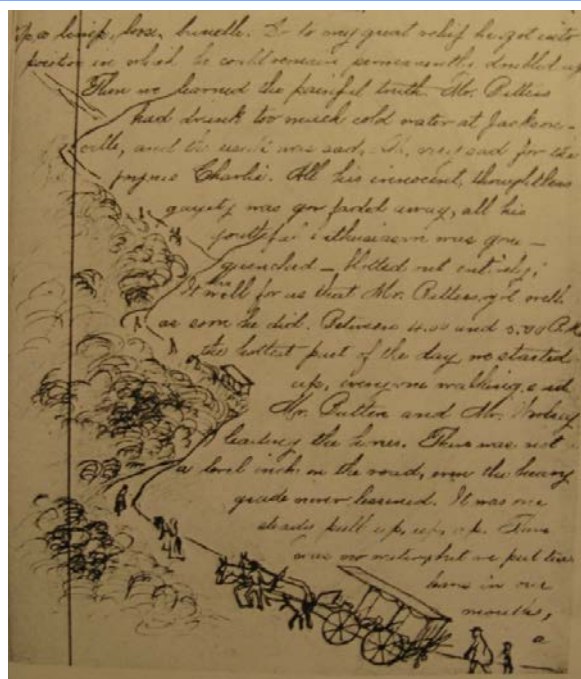 great relief he got into
position in which he could remain permanently, doubled up
Then we learned the painful truth. Mr.
had drunk too much cold water at Jackson-
ville, and the result was sad, sad for the
Charlie. All his innocent, thoughtless
gayety was gone faded away, all his
youthful enthusiasm was gone –
quenched – blotted out entirely;
It well for us that Mr. got well
as soon he did. Between 4.00 and 5.00 P.M.
the hottest part of the day we started
up, everyone walking, and
Mr. and Mr.
leading the horses. There was not
a level inch on the road, even the heavy
grade never lessened. It was one
steady pull up, up, up. There
was no water, but we put
in our
mouths,
a